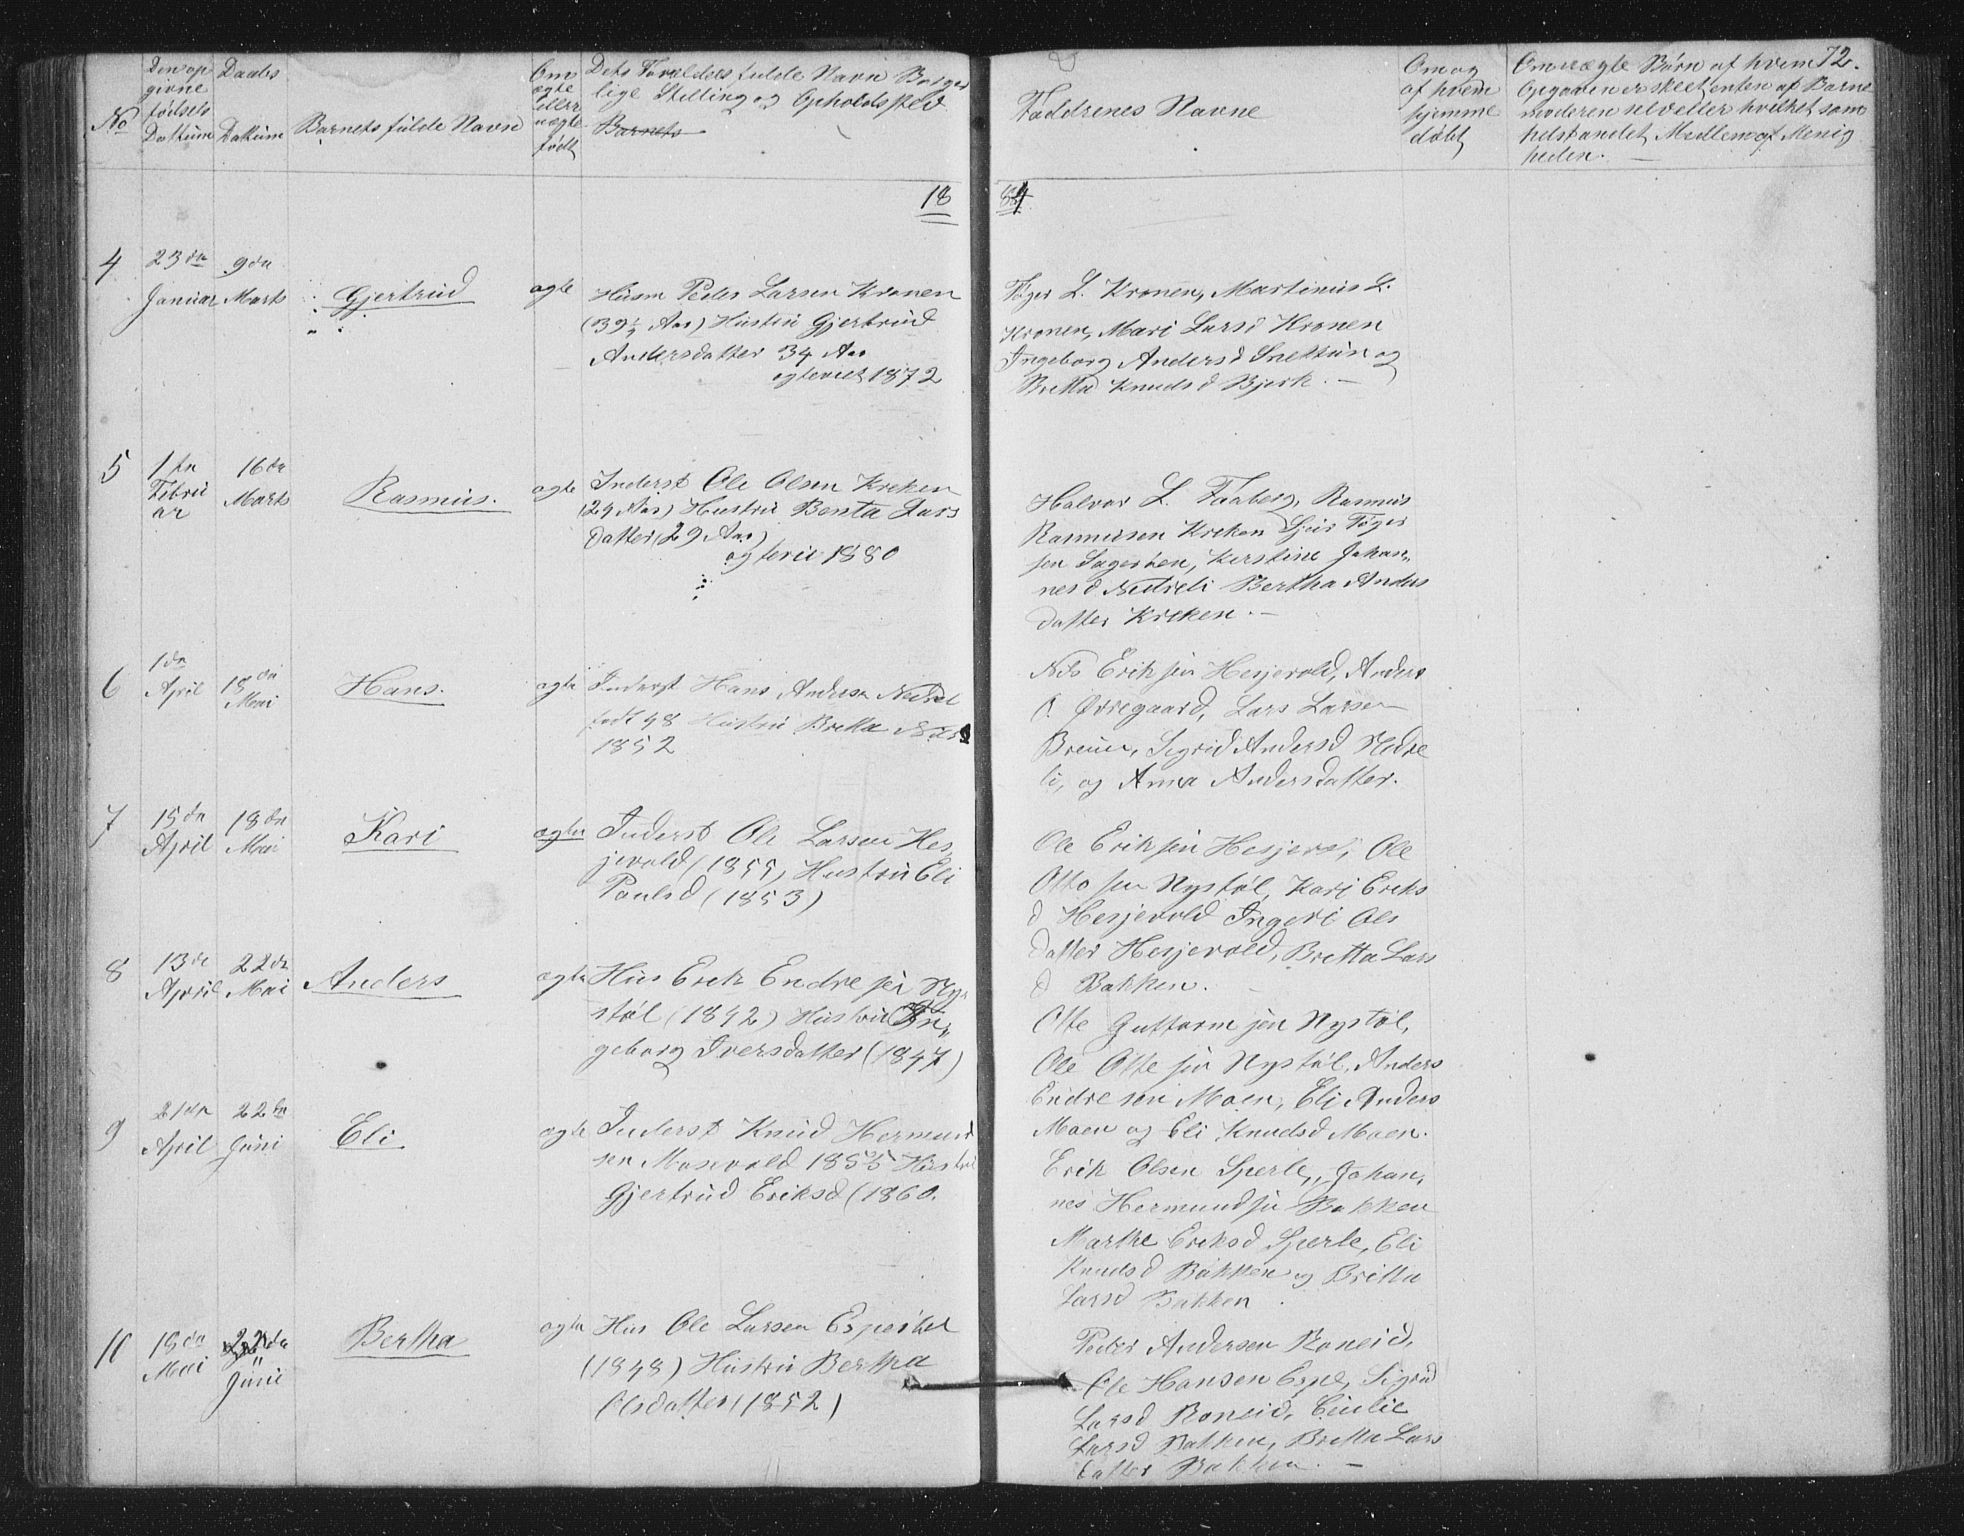 No
Den op
givne
fødsels
Dattum
Daabs
Datum
Barnets fulde Navn
Om
ægte
eller
uægte
født
Dets Forælders fulde Navn Borger
lige Stilling og Opholdssted
Barnets
Faddrenes Navne
Om og
af hvem
hjemme
døbt
Om uægte Børn af hvem 72.
Opgaven er skeet enten af Barne
moderen selv eller hvilket som
helst andet Medlem af Menig
heden. —
18 84
4
23de
Januar
9de
Marts
Gjertrud
ægte
Husm Peder Larsen Kronen
(39½ Aar) Hustru Gjertrud
Andersdatter 34 Aar
ægteviet 1872
Tøger L. Kronen, Martinus L.
Kronen, Mari Larsd Kronen
Ingeborg Andersd Snettun og
Britta Knudsd Bjerk. —
5
1ste
Febru
ar
16de
Marts
Rasmus.
ægte
Inderst Ole Olsen Kreken
(29 Aar) Hustru Benta Lars
datter (29 Aar)
ægteviet 1880
Halvor L. Faaberg, Rasmus
Rasmusen Kreken Tøger
sen Sagesten, Kerstine Johan„
nesd Nedreli Bertha Anders
datter Kreken. —
6
1de
April
18de
Mai
Hans.
ægte
Inderst Hans Andersen Nedrel
født 48 Hustru Britta
1852
Nils Eriksen Hesjevold, Anders
O. Øvregaard, Lars Larsen
Breum, Sigrid Andersd Nedre
li, og Anna Andersdatter.
7
15de
April
18de
Mai
Kari
ægte
Inderst Ole Larsen Hes„
jevold (1855) Hustru Eli
Paulsd (1853)
Ole Eriksen Hesjev, Ole
Otto sen Nystøl, Kari Eriks
d Hesjevold Ingeri Ols
datter Hesjevold, Britta Lars
d Bakken.
8
13de
April
22de
Mai
Anders
ægte
Hus Erik Endre sen Ny„
støl (1842) Hustru In„
geborg Iversdatter (1847)
Otte Guttorm sen Nystøl,
Ole Otte sen Nystøl, Anders
Endre sen Moen, Eli Anders
Moen og Eli Knudsd Moen.
9
21de
April
22de
Juni
Eli
ægte
Inderst Knud Hermund
sen Mosevold 1855 Hustru
Gjertrud Eriksd (1860.
Erik Olsen Sperle, Johan„
nes Hermundsen Bakken
Marthe Eriksd Sperle, Eli
Knudsd Bakken og Britta
Larsd Bakken
10
18de
Mai
22de
Juni
Bertha
ægte
Hus Ole Larsen Espeset
(1848) Hustru Bertha
Olsdatter (1852)
Peder Andersen Roneid,
Ole Hansen Espe, Sigrid
Larsd Roneid, Cicilie
Larsd Bakken, Britta Lars
datter Bakken. —